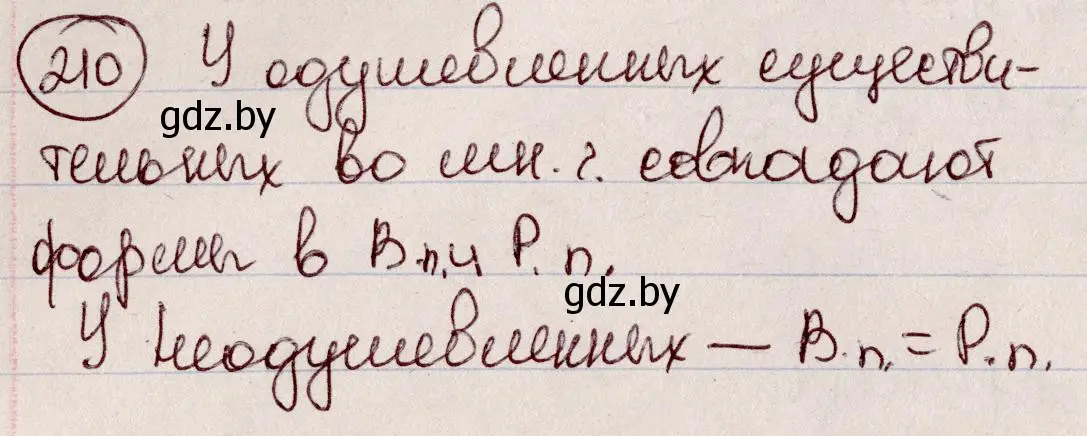 210 У одушевленных существи-
gdz.by
тельных во мн. г. совпадают
формы в В.п. и Р.п.
gdz.by
У неодушевленных — В.п. = Р.п.